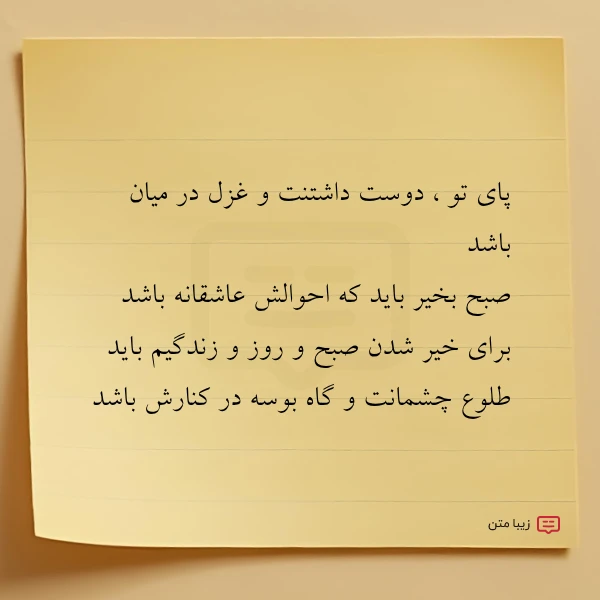 پای تو ، دوست داشتنت و غزل در میان
باشد
صبح بخیر باید که احوالش عاشقانه باشد
برای خیر شدن صبح و روز و زندگیم باید
طلوع چشمانت و گاه بوسه در کنارش باشد
زیبا متن